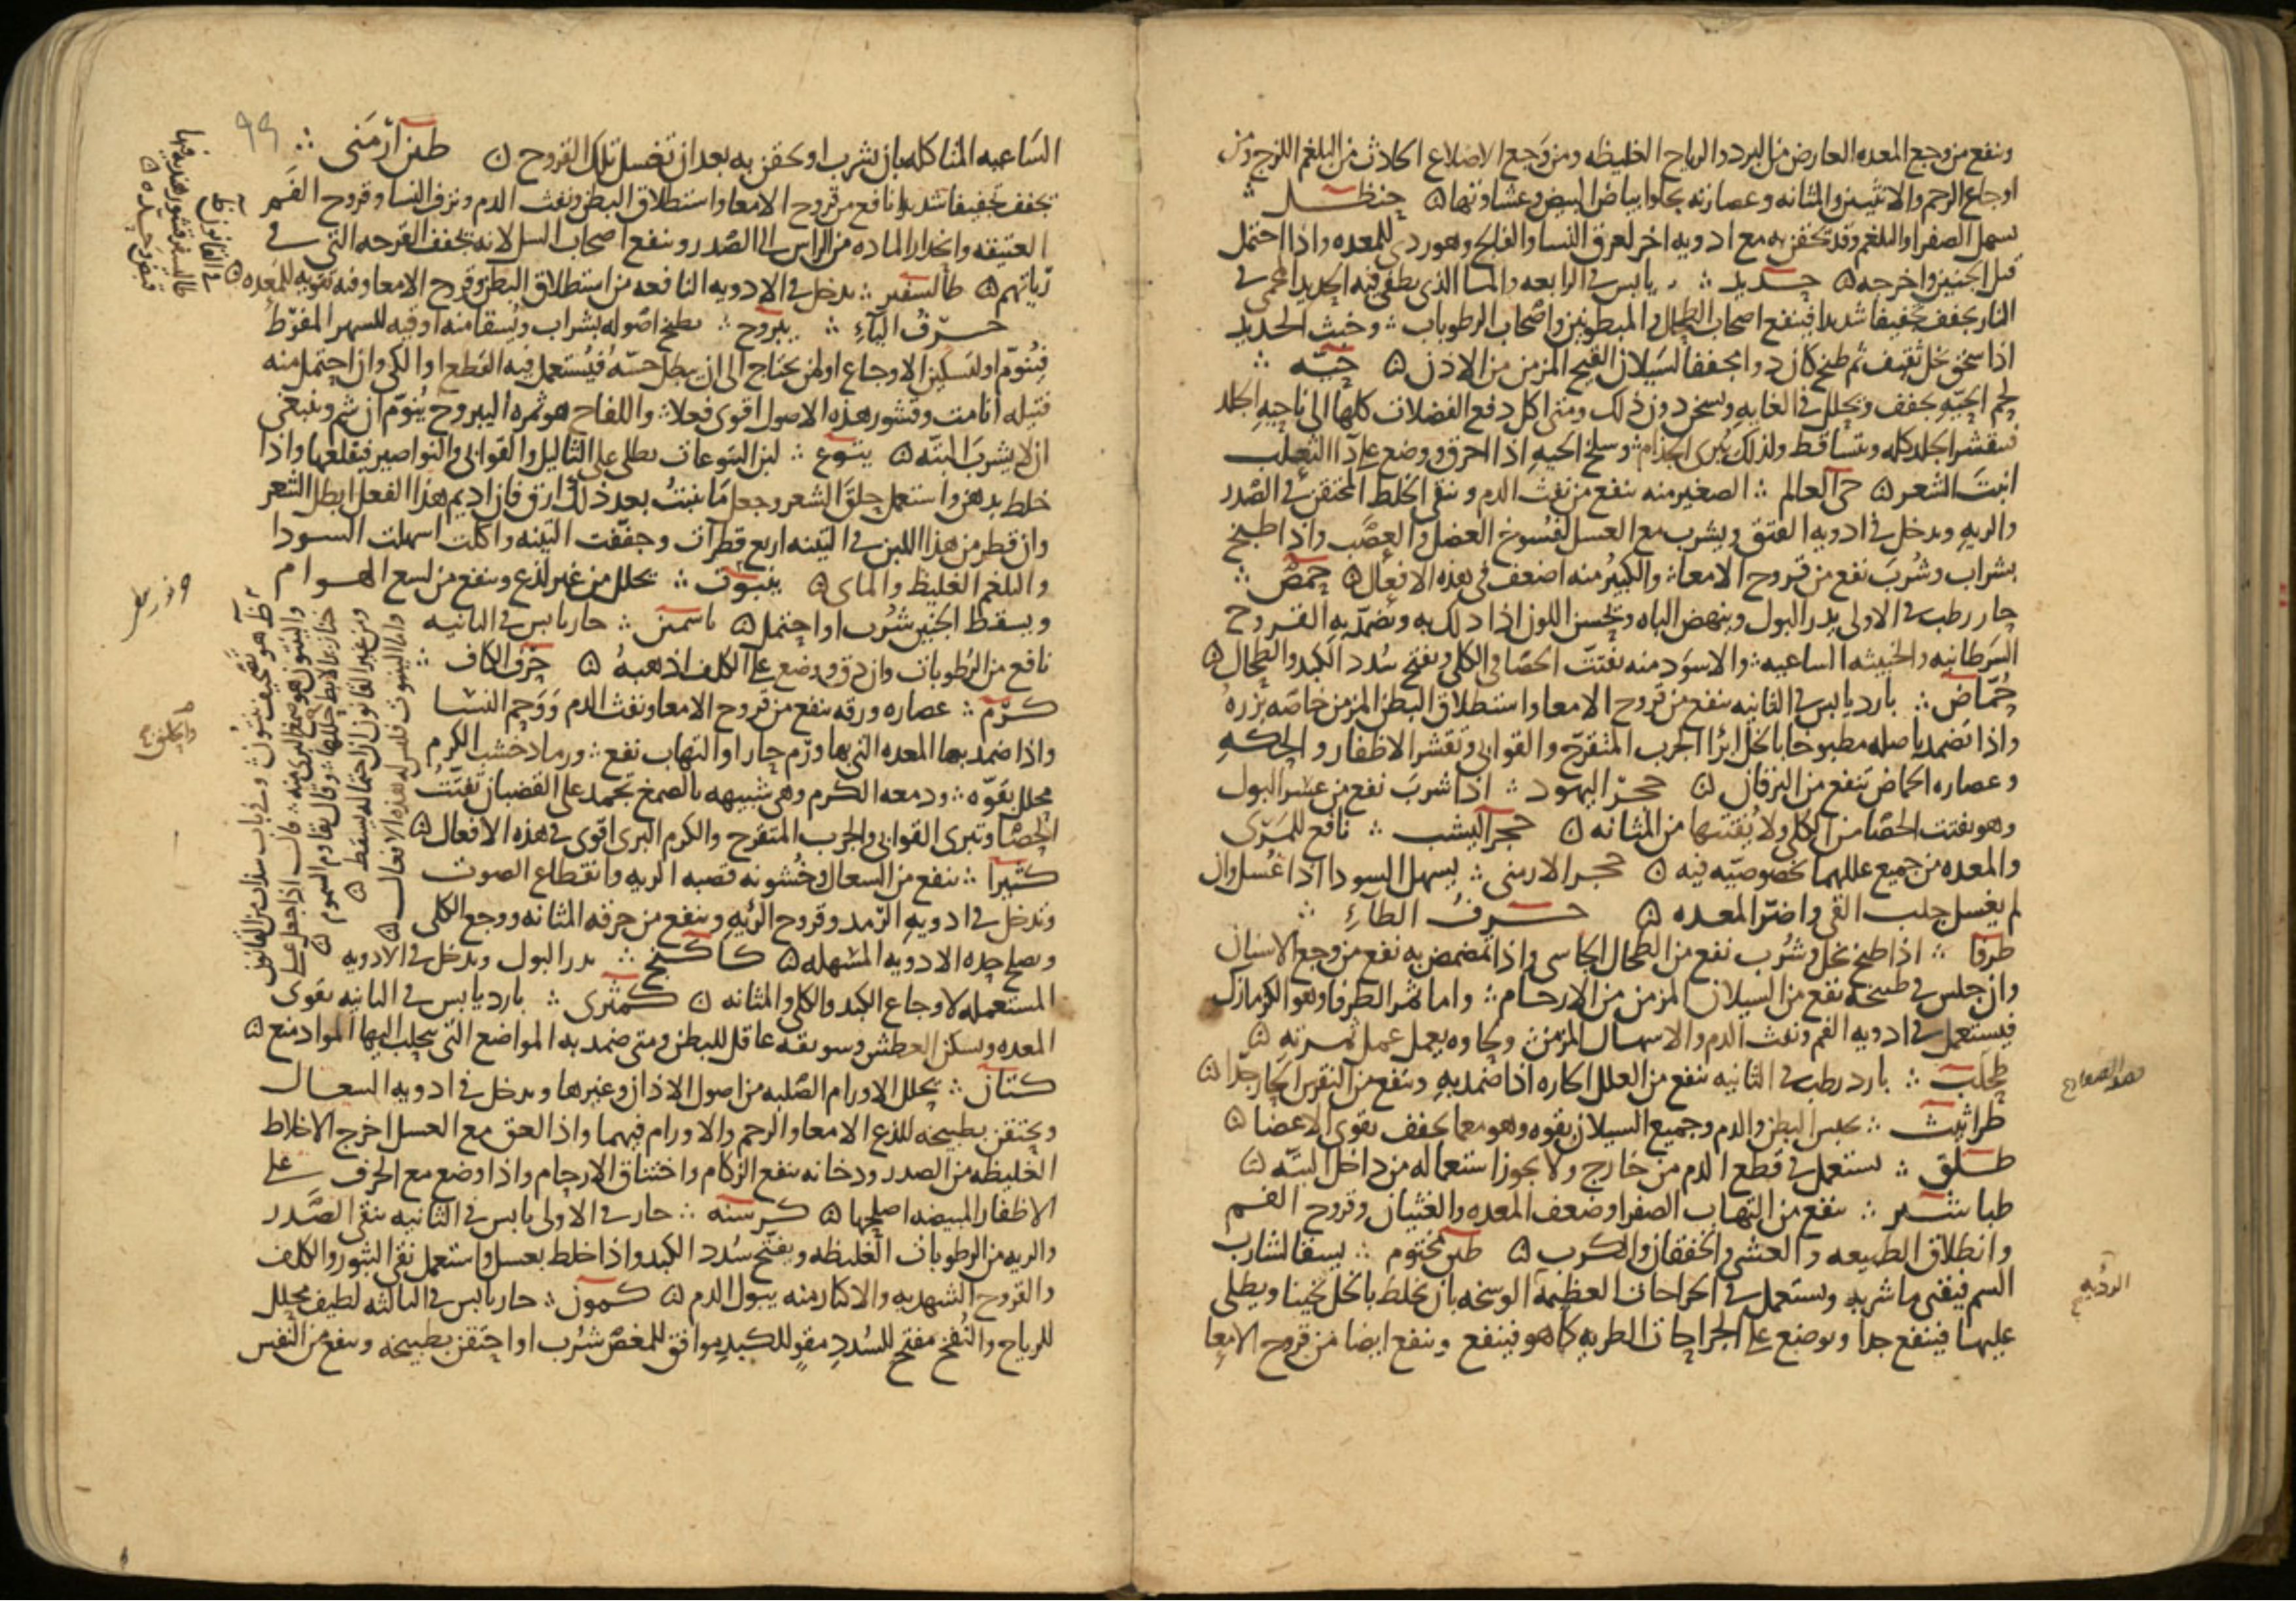 وينفع من وجع المعده العارض من البرد والرياح الغليظه ومن وجع الاضلاع الحادث من البلغم اللزج ومن
اوجاع الرحم والانثيين والمثانه وعصارته يجلوا بياض البيض وغشاوتها ۞ حنظل ∴
يسهل الصفرا والبلغم وقد يحقن به مع ادويه اخر لعرق النسا والفالج وهو ردي للمعده واذا احتمل
قتل الجنين واخرجه ۞ حديد ∴ يابس في الرابعه والماء الذي يطفى فيه الحديد المحمى في
النار يجفف تجفيفا شديدا فينفع اصحاب الطحال والمبطونين واصحاب الرطوبات ∴ وخبث الحديد
اذا سحق بخل ثقيف ثم طبخ كان دوا مجففا لسيلان القيح المزمن من الاذن ۞ حيّه ∴
لحم الحيّه يجفف ويحلل في الغايه ويسخن دون ذلك ومتى اكل دفع الفضلات كلها الى ناحيه الجلد
فينقشر الجلد كله ويتساقط ولذلك يبرى الجذام ∴ وسلخ الحيه اذا احرق ووضع على دا الثعلب
انبت الشعر ۞ حى العالم ∴ الصغير منه ينفع من نفث الدم وينقى الخلط المحتقن في الصدر
والريه ويدخل في ادويه الفتق ويشرب مع العسل لفسوخ العضل والعصب واذا طبخ
بشراب وشرب نفع من قروح الامعا ∴ والكبير منه اضعف في هذه الافعال ۞ حمص ∴
حار رطب في الاولى يدر البول وينهض الباه ويحسن اللون اذا دلك به ويضمد به القروح
السرطانيه والخبيثه الساعيه ∴ والاسود منه يفتت الحصا في الكلى ويفتح سدد الكبد والطحال ۞
حُمّاض ∴ بارد يابس في الثانيه ينفع من قروح الامعا واستطلاق البطن المزمن خاصه بزره
واذا تضمد باصله مطبوخا بالخل ابرا الجرب المتقرح والقوابى وتقشر الاظفار والحكه
وعصاره الحماض ينفع من اليرقان ۞ حجر اليهود ∴ اذا شرب نفع من عسر البول
وهو يفتت الحصا من الكلى ولا يفتتها من المثانه ۞ حجر اليشب ∴ نافع للمرى
والمعده من جميع عللهما بخصوصيه فيه ۞ حجر الارمنى ∴ يسهل السودا اذا غسل وان
لم يغسل جلب القى واضر المعده ۞ حرف الطاء ∴
طرفا ∴ اذا طبخ بخل وشرب نفع من الطحال الجاسى واذا تمضمض به نفع من وجع الاسنان
وان جلس في طبيخه نفع من السيلان المزمن من الارحام ∴ واما ثمر الطرفا وهو الكزمازك
فيستعمل في ادويه الفم ونفث الدم والاسهال المزمن ولحاوه يعمل عمل ثمرته ۞
طحلب ∴ بارد رطب في الثانيه ينفع من العلل الحاره اذا ضمد به وينفع من النقرس الحار جدا ۞
طراثيث ∴ يحبس البطن والدم وجميع السيلان بقوه وهو مع ما يجفف يقوى الاعضا ۞
طلق ∴ يستعمل في قطع الدم من خارج ولا يجوز استعماله من داخل البتّه ۞
طباشير ∴ ينفع من التهاب الصفرا وضعف المعده والغثيان وقروح الفم
وانطلاق الطبيعه والغشى والخفقان والكرب ۞ طين مختوم ∴ يسقا الشارب
السم فيقى ما شربه ويستعمل في الجراحات العظيمه الوسخه بان يخلط بالخل ثخينا ويطلى
عليها فينفع جدا ويوضع على الجراحات الطريه كما هو فينفع وينفع ايضا من قروح الامعا
الساعيه المتاكله بان يشرب او يحقن به بعد ان تغسل تلك القروح ۞ طين ارمنى ∴
٩٩
يجفف تجفيفا شديدا نافع من قروح الامعا واستطلاق البطن ونفث الدم ونزف النسا وقروح الفم
العتيقه وانحدار الماده من الراس الى الصدر وينفع اصحاب السل لانه يجفف القرحه التي في
رياتهم ۞ طاليسفير ∴ يدخل في الادويه النافعه من استطلاق البطن وقروح الامعا وفيه تقويه للمعده ۞
حرف الياء ∴ يبروح ∴ يطبخ اصوله بشراب ويسقا منه اوقيه للسهر المفرط
فينوم او لتسكين الاوجاع او لمن يحتاج الى ان يبطل حسه فيستعمل فيه القطع او الكى وان احتمل منه
فتيله انامت وقشور هذه الاصول اقوى فعلا ∴ واللفاح هو ثمره اليبروح ينوّم ان شم وينبغى
ان لا يشرب البتّه ۞ يتوع ∴ لبن اليتوعات يطلى على الثاليل والقوابى والنواصير فيقلعها واذا
خلط بدهن واستعمل حلق الشعر وجعل ما ينبت بعد ذلك ارق فان اديم هذا الفعل ابطل الشعر
وان قطر من هذا اللبن في التينه اربع قطرات وجففت التينه واكلت اسهلت السودا
والبلغم الغليظ والماى ۞ ينبوت ∴ يحلل من غير لذع وينفع من لسع الهوام
ويسقط الجنين شرب او احتمل ۞ ياسمين ∴ حار يابس في الثانيه
نافع من الرطوبات وان دق ووضع على الكلف اذهبه ۞ حرف الكاف ∴
كرم ∴ عصاره ورقه ينفع من قروح الامعا ونفث الدم ووحم النسا
واذا ضمد بها المعده التي بها ورم حار او التهاب نفع ∴ ورماد خشب الكرم
محلل بقوّه ∴ ودمعه الكرم وهى شبيهه بالصمغ تجمد على القضبان تفتت
الحصا وتبرى القوابى والجرب المتقرح والكرم البرى اقوى في هذه الافعال ۞
كثيرا ∴ ينفع من السعال وخشونه قصبه الريه وانقطاع الصوت
وتدخل في ادويه الرمد وقروح الريه وينفع من حرقه المثانه ووجع الكلى
ويصلح حده الادويه المسهله ۞ كاكنج ∴ يدر البول ويدخل في الادويه
المستعمله لاوجاع الكبد والكلى والمثانه ۞ كمثرى ∴ بارد يابس في الثانيه يقوى
المعده ويسكن العطش وسويقه عاقل للبطن ومتى ضمد به المواضع التي يتحلب اليها المواد منع ۞
كتان ∴ يحلل الاورام الصلبه من اصول الاذان وغيرها ويدخل في ادويه السعال
ويحتقن بطبيخه للذع الامعا والرحم والاورام فيهما واذا لعق مع العسل اخرج الاخلاط
الغليظه من الصدر ودخانه ينفع الزكام واختناق الارحام واذا وضع مع الحرف على
الاظفار المبيضه اصلحها ۞ كرسنه ∴ حار في الاولى يابس في الثانيه ينقى الصدر
والريه من الرطوبات الغليظه ويفتح سدد الكبد واذا خلط بعسل واستعمل نقى البثور والكلف
والقروح الشهديه والاكثار منه يبول الدم ۞ كمون ∴ حار يابس في الثالثه لطيف محلل
للرياح والنفخ مفتح للسدد مقو للكبد موافق للمغص شرب او احتقن بطبيخه وينفع من النفس